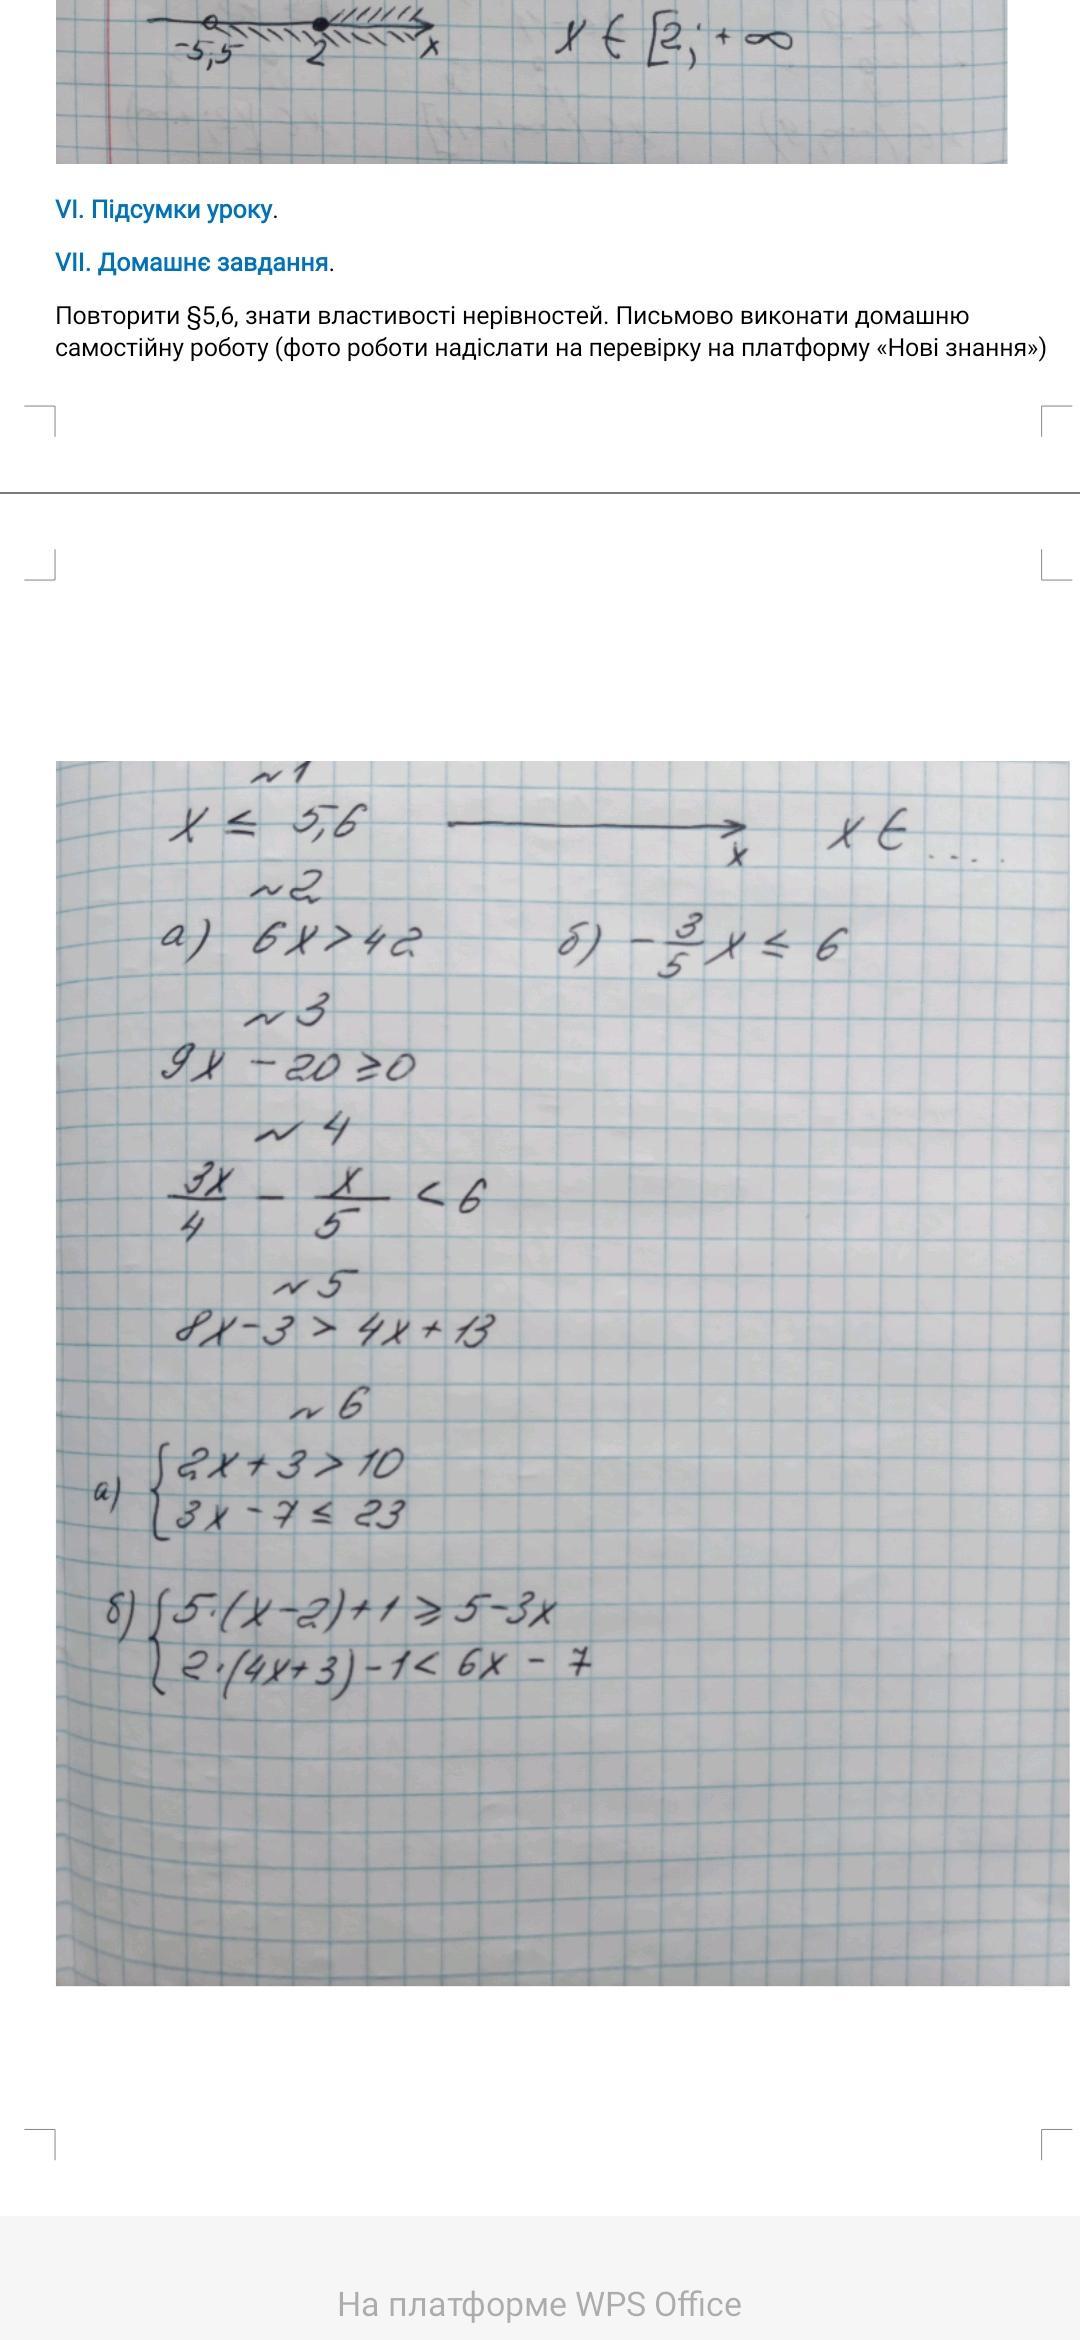 -5,5 2 x x ∈ [2; +∞
VI. Підсумки уроку.
VII. Домашнє завдання.
Повторити §5,6, знати властивості нерівностей. Письмово виконати домашню
самостійну роботу (фото роботи надіслати на перевірку на платформу «Нові знання»)
~1
x ≤ 5,6 x x ∈ ....
~2
а) 6x > 42 б) -3/5 x ≤ 6
~3
9x - 20 ≥ 0
~4
3x/4 - x/5 < 6
~5
8x - 3 > 4x + 13
~6
а) { 2x + 3 > 10
3x - 7 ≤ 23
б) { 5·(x-2)+1 ≥ 5-3x
2·(4x+3)-1 < 6x - 7
На платформе WPS Office